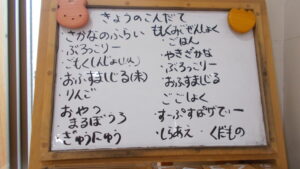 きょうのこんだて
さかなのふらい
・ぶろっこりー
・おふすましじる(未)
・りんご
おやつ
まるぼうろ
・ぎゅうにゅう
・ごはん
・やきざかな
・ぶろっこりー
・おふすましじる
ごごしょく
・すーぷすぱげてぃー
・しらあえ ・くだもの